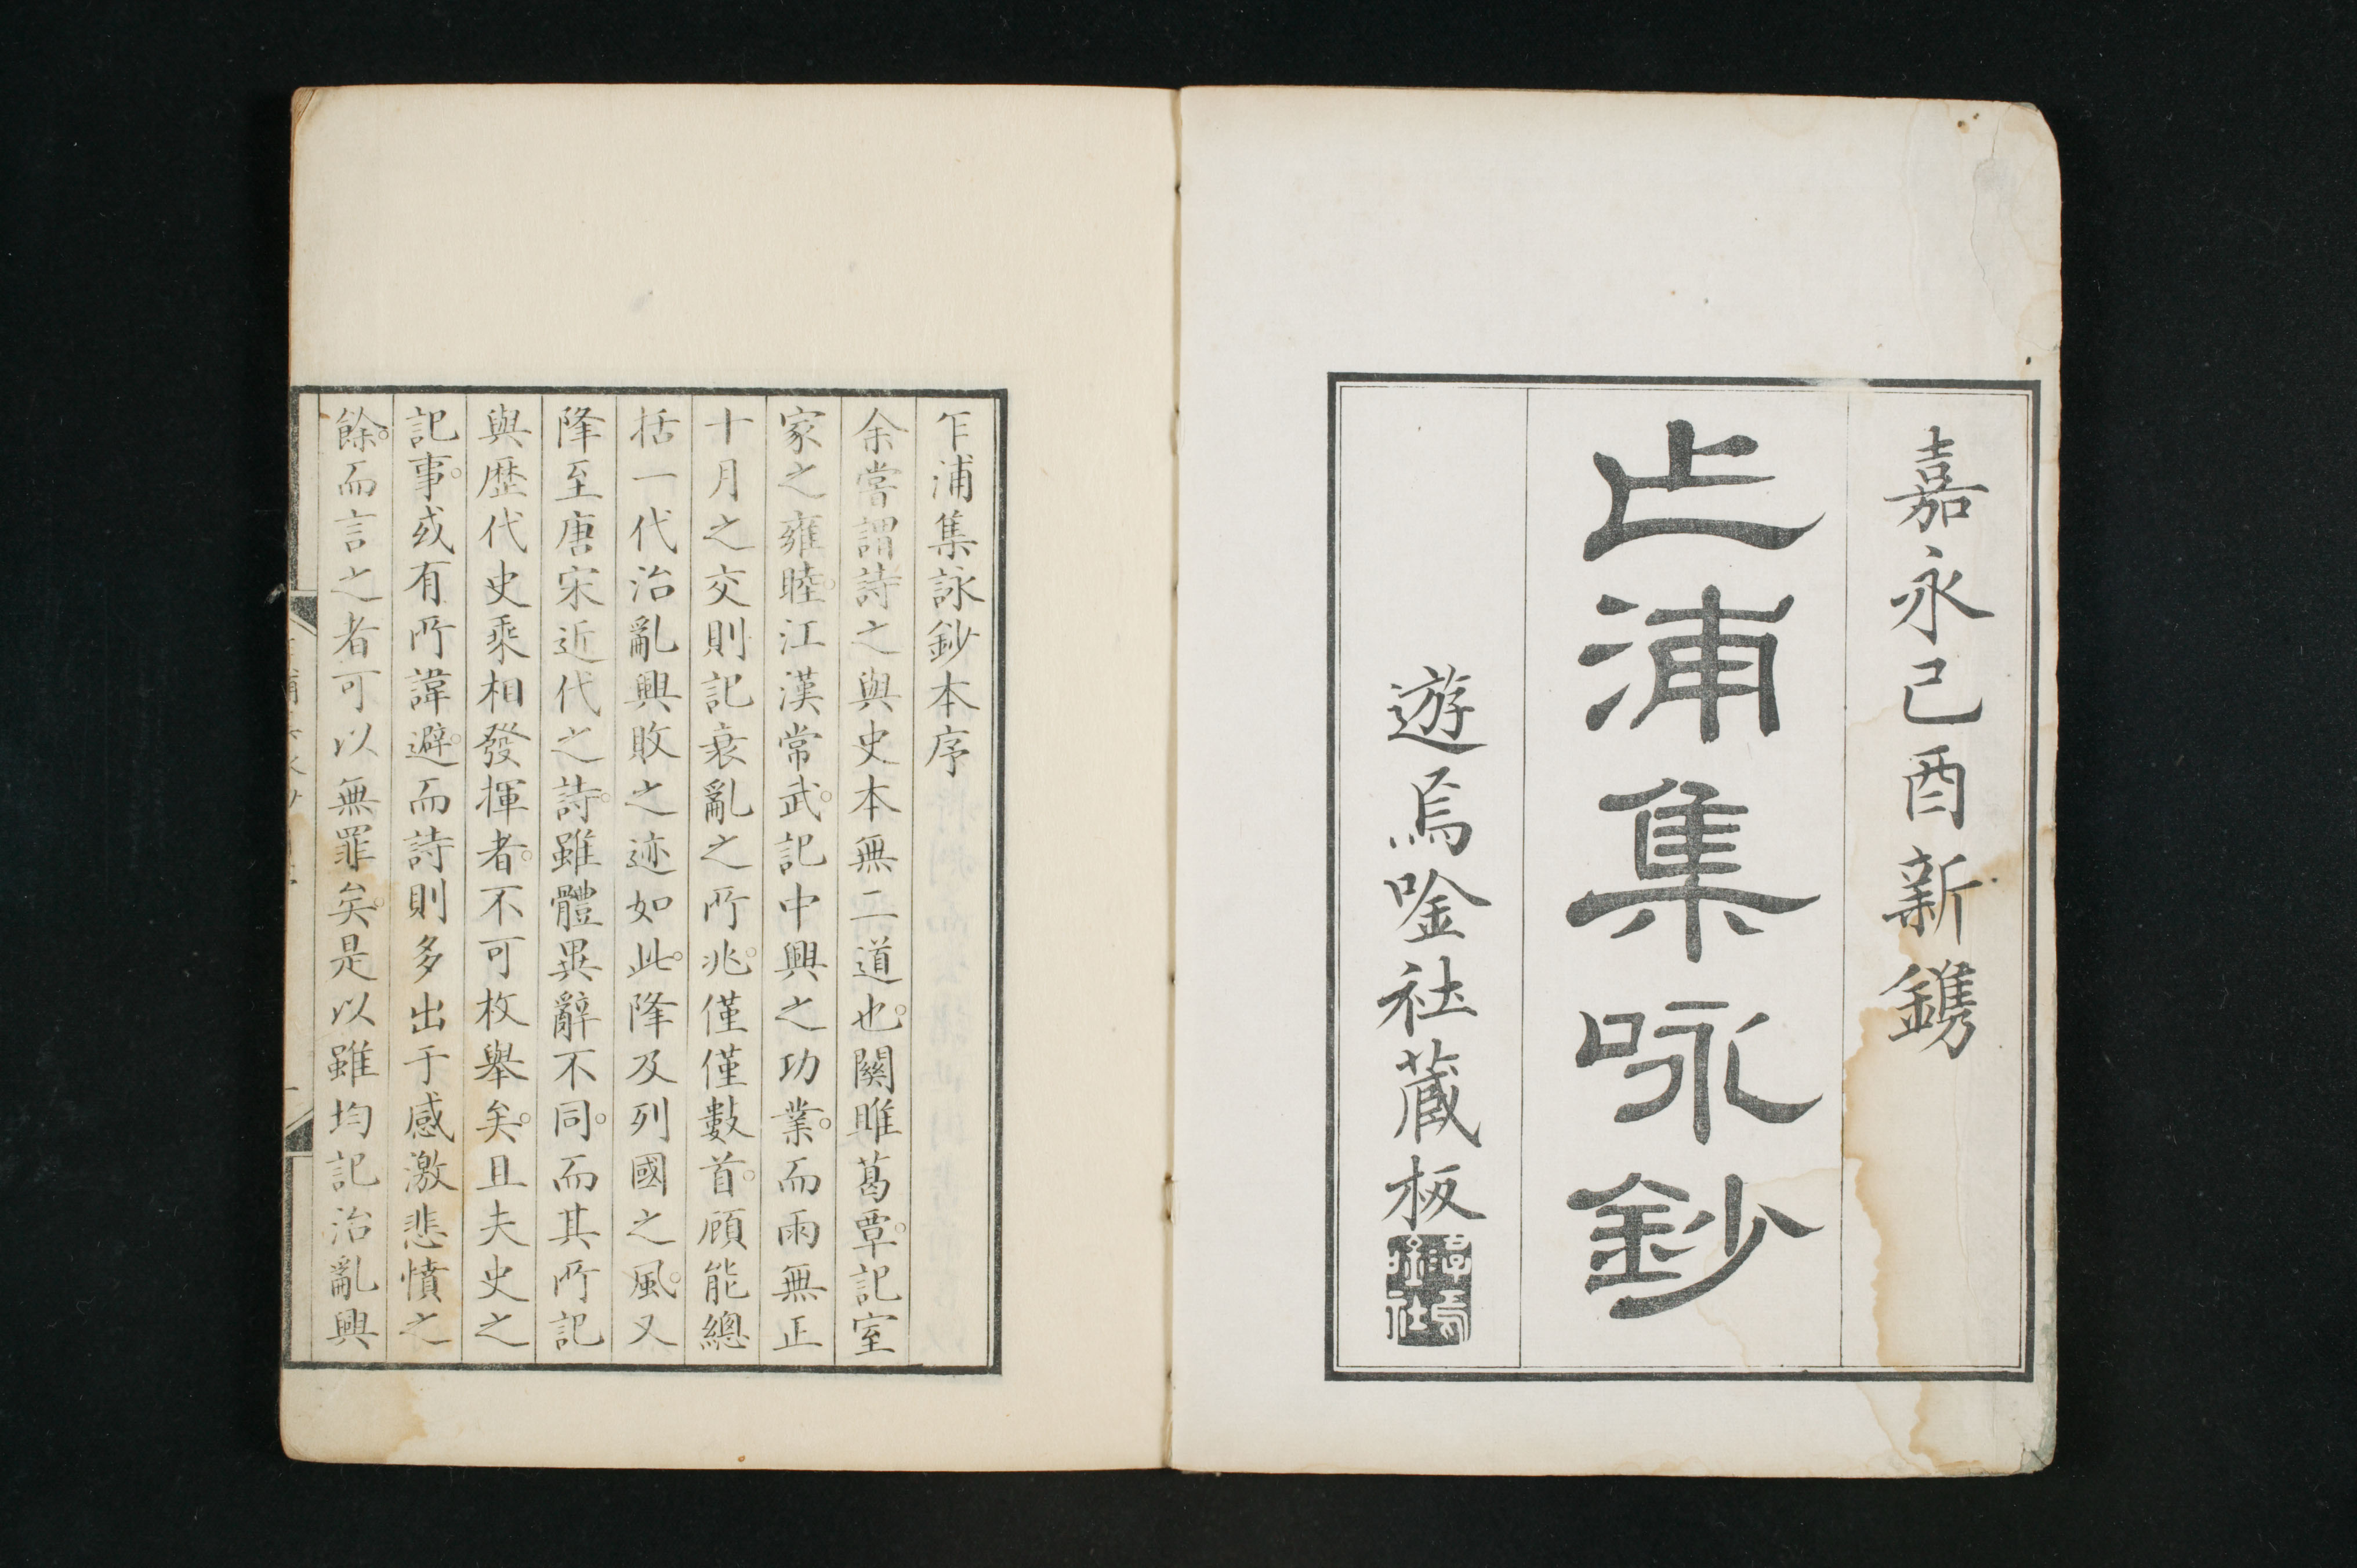 嘉永己酉新鐫
乍浦集咏鈔
遊焉唫社蔵板
乍浦集詠鈔本序
余嘗謂詩之與史本無二道也。關雎葛覃。記室
家之雍睦。江漢常武。記中興之功業。而雨無正
十月之交則記衰亂之所兆。僅僅數首。顧能總
括一代治亂興敗之迹如此。降及列國之風。又
降至唐宋近代之詩。雖體異辭不同。而其所記
與歷代史乘相發揮者。不可枚舉矣。且夫史之
記事。或有所諱避。而詩則多出于感激悲憤之
餘。而言之者可以無罪矣。是以雖均記治亂興